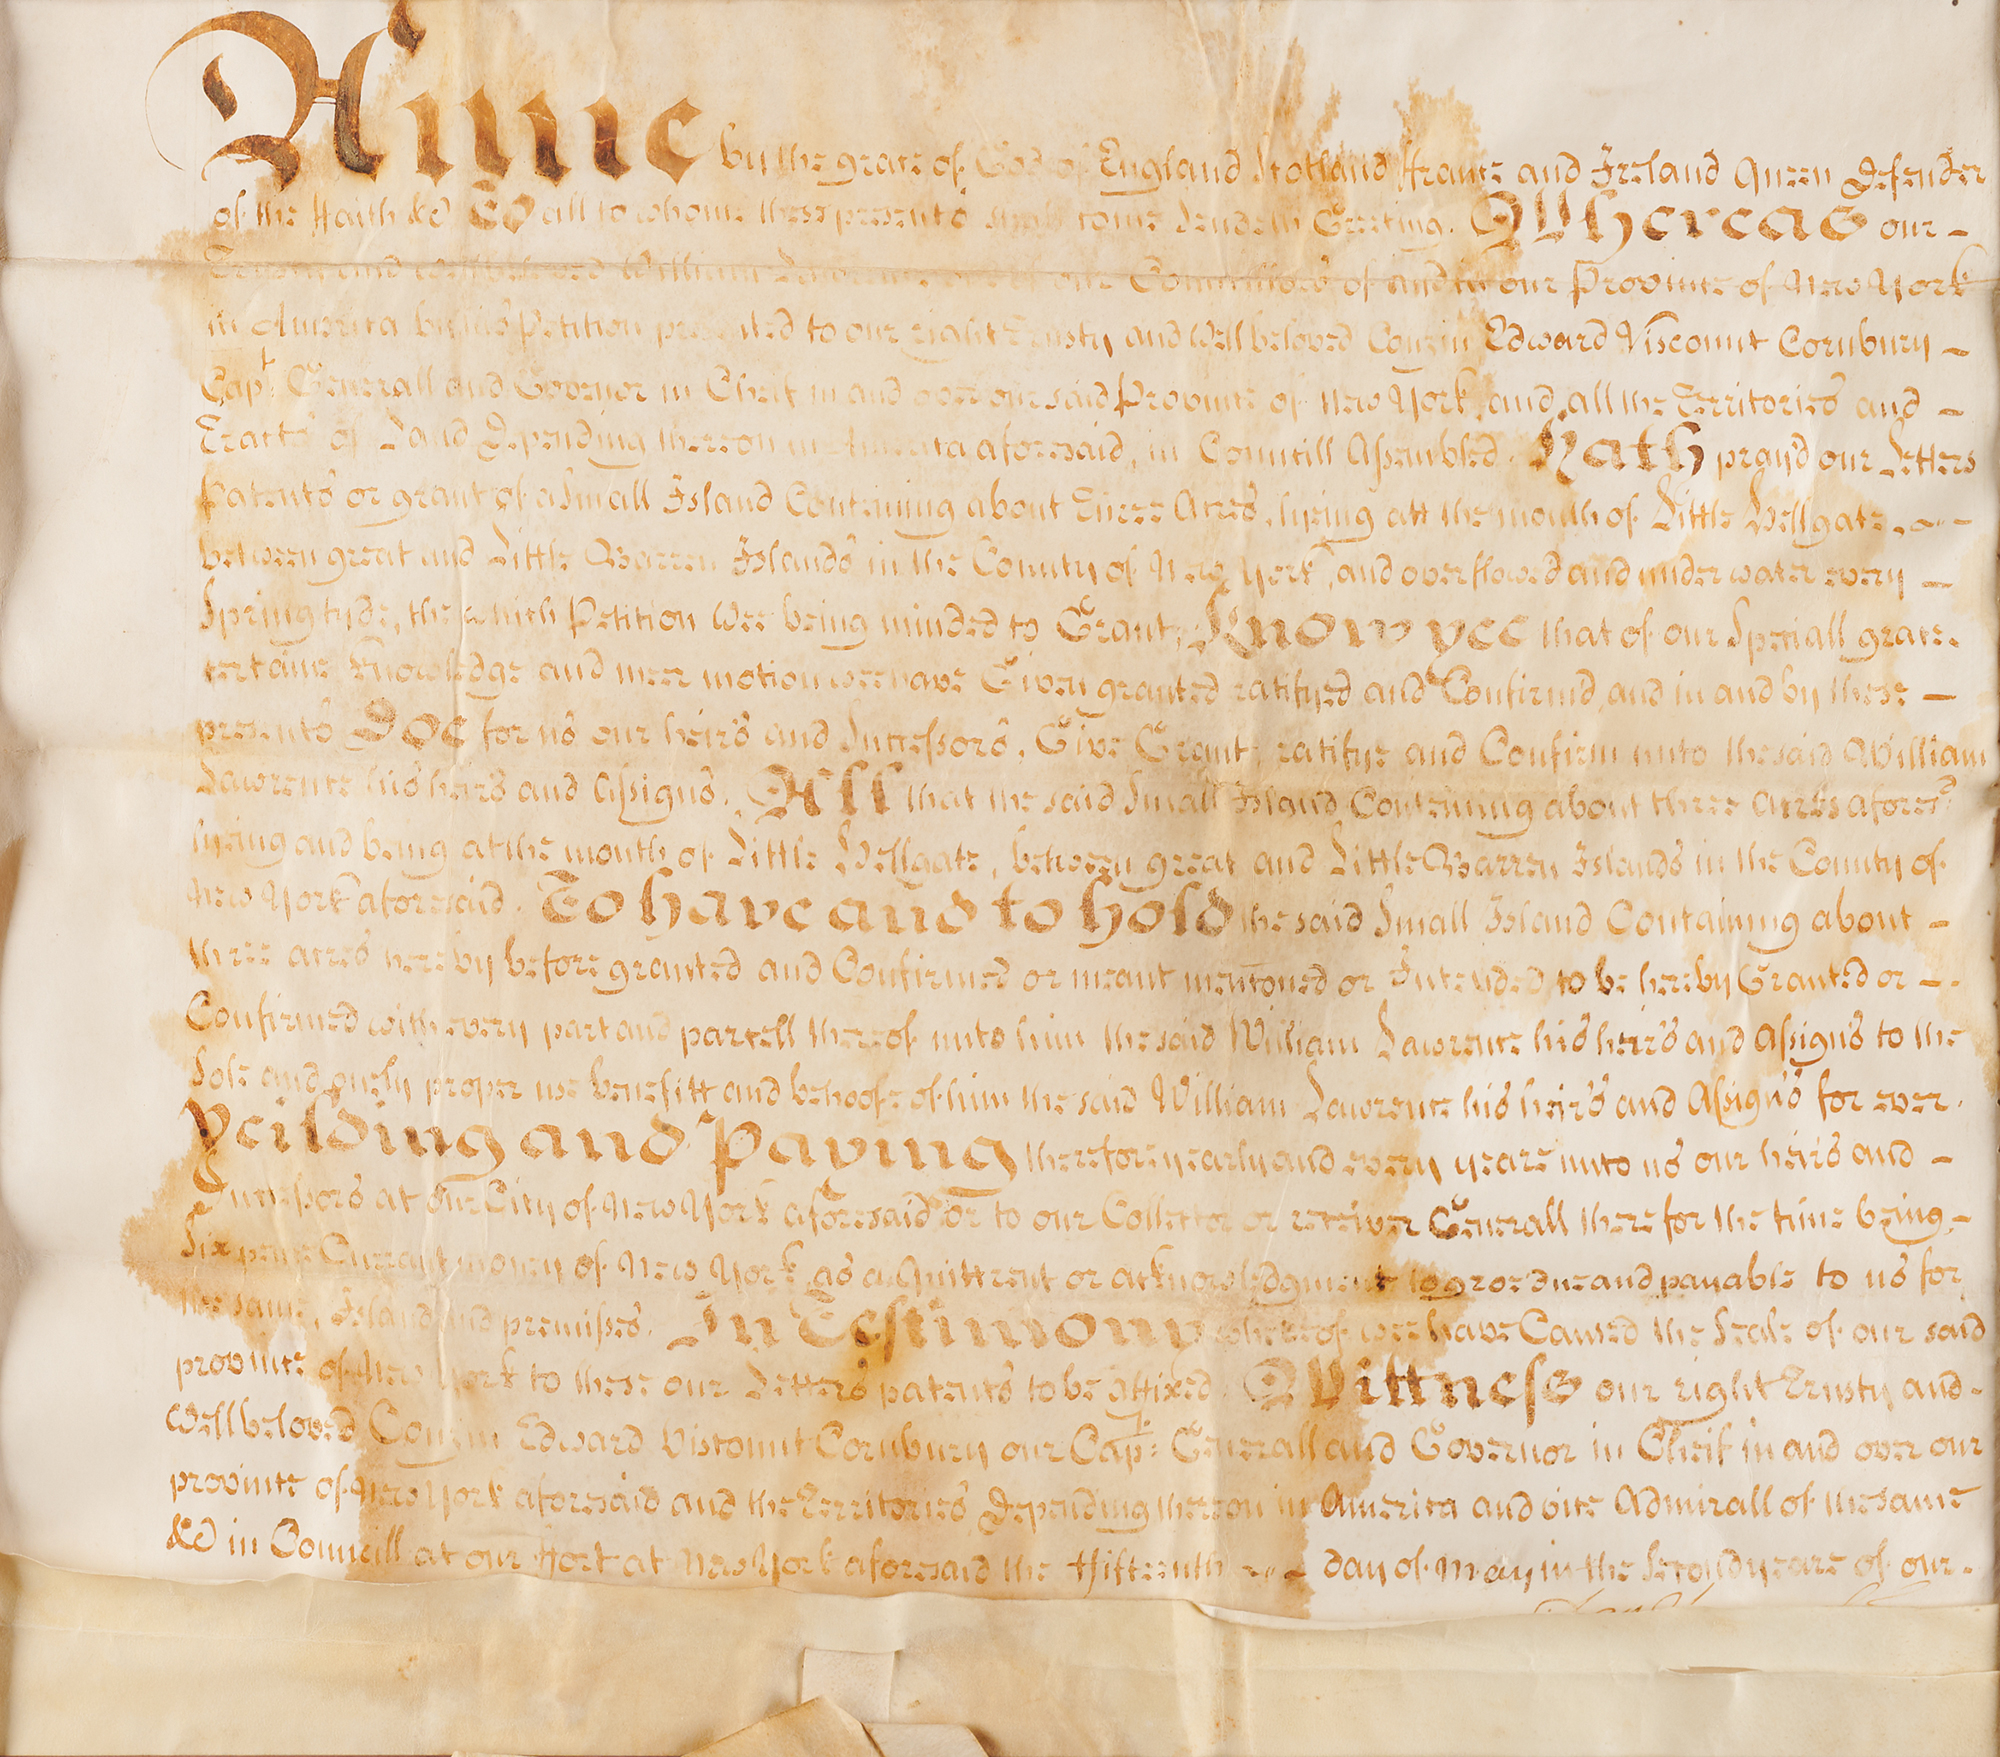 Anne by the grace of God of England Scotland ffrance and Ireland Queen Defender
of the ffaith &c To all to whome these presents shall come Sendeth Greeting. Whereas our -
Trusty and Wellbeloved William Lawrence one of our Councillors of and in our Province of New York
in America by his Petition presented to our right Trusty and Wellbeloved Couzin Edward Viscount Cornbury -
Capt. Generall and Govenor in Cheif in and over our said Province of New York, and all the Territories and -
Tracts of Land Depending thereon in America aforesaid, in Councill Assembled. Hath pray'd our Letters
Patents or grant of a Small Island Conteining about Three Acres, lyeing att the mouth of Little Hellgate, -
between great and Little Barren Islands in the County of New York, and overflowed and under water every -
Spring tyde, the which Petition Wee being minded to Grant, Know yee that of our Speciall grace.
certaine knowledge and meer motion wee have Given granted ratifyed and Confirmd, and in and by these -
presents Doe for us our heirs and Successors, Give Grant, ratifye and Confirm unto the said William
Lawrence his heirs and Assigns. All that the said Small Island Conteining about three acres aforesd
lyeing and being at the mouth of Little Hellgate, between great and Little Barren Islands in the County of
New York aforesaid. To have and to hold the said Small Island Containing about -
three acres hereby before granted and Confirmed or meant mentoned or Intended to be hereby Granted or - -
Confirmed with every part and parcell thereof unto him the said William Lawrence his heirs and Assigns to the
Sole and onely proper use benefitt and behoofe of him the said William Lawrence his heirs and Assigns for ever.
Yeilding and Paying therefore yearly and every yeare unto us our heirs and -
Successors at our City of New York aforesaid or to our Collector or receiver Generall there for the time being, -
Six pence Currant money of New York as a Quittrent or acknowledgment to grow due and payable to us for
the same, Island and premisses. In Testimony whereof wee have Caused the Seale of our said
province of New York to these our Letters patents to be affixed. Wittness our right Trusty and -
Wellbeloved Couzin Edward Viscount Cornbury our Capt: Generall and Governor in Cheif in and over our
province of New York aforesaid and the Territories Depending thereon in America and vice Admirall of the same
&c in Councill at our ffort at New York aforesaid the ffifteenth - day of May in the Second yeare of our -